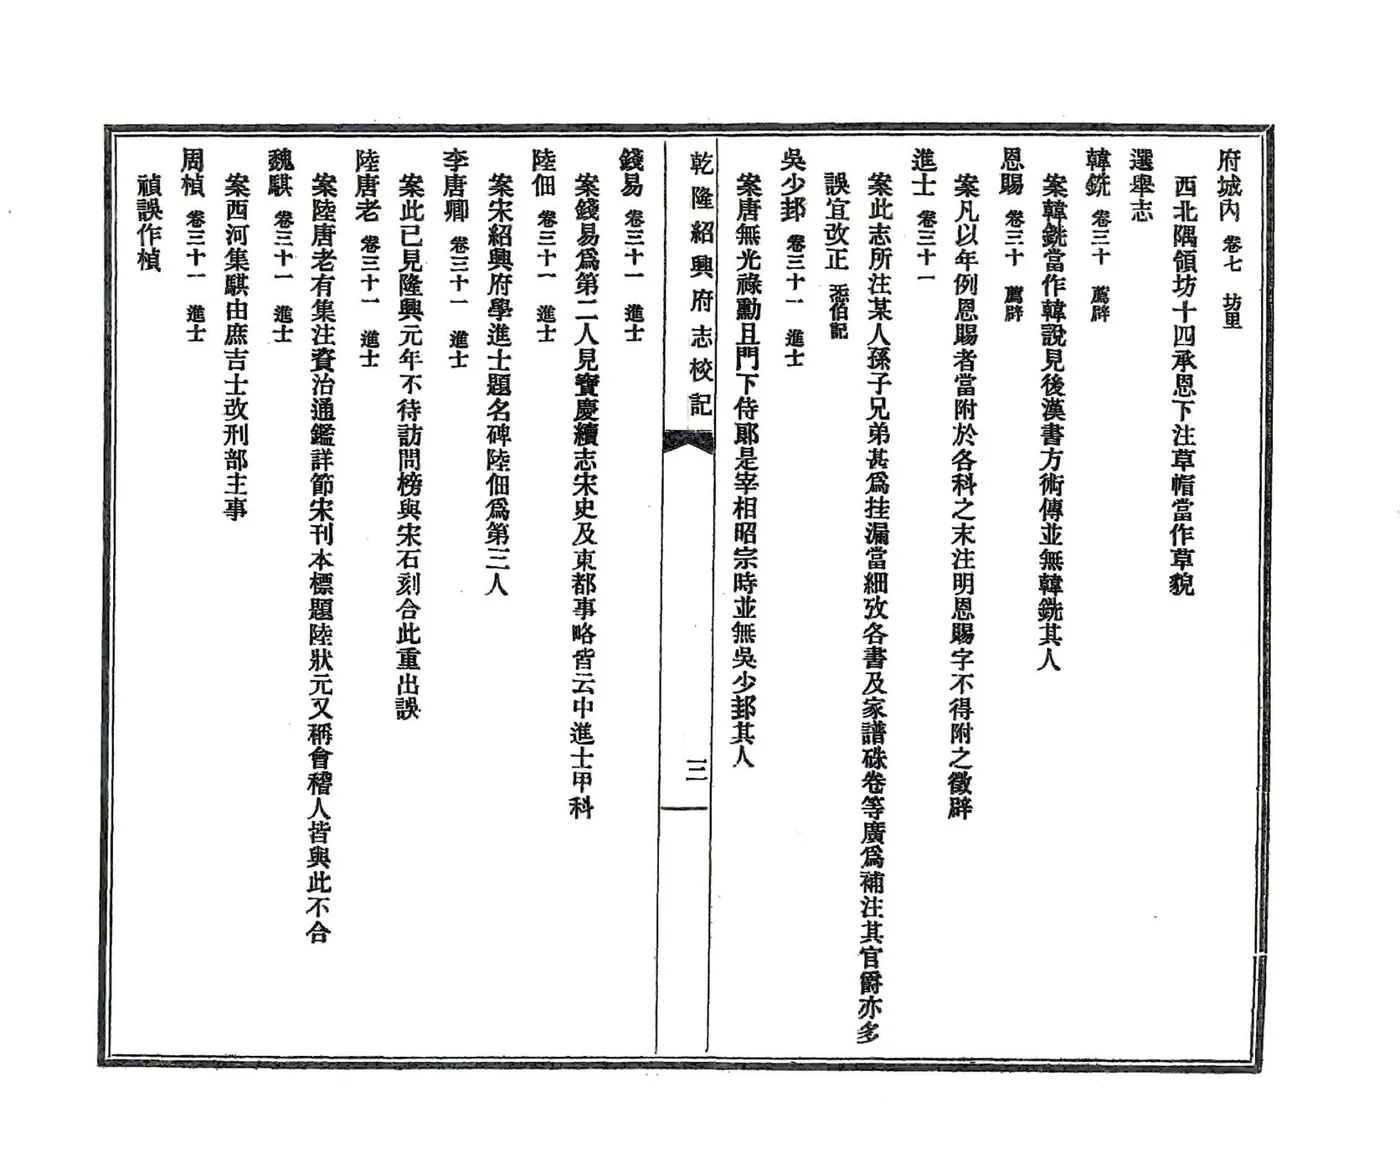 府城內 卷七 坊里
西北隅領坊十四承恩下注草帽當作草貌
選舉志
韓銑 卷三十 薦辟
案韓銑當作韓說見後漢書方術傳並無韓銑其人
恩賜 卷三十 薦辟
案凡以年例恩賜者當附於各科之末注明恩賜字不得附之徵辟
進士 卷三十一
案此志所注某人孫子兄弟甚爲挂漏當細攷各書及家譜硃卷等廣爲補注其官爵亦多
誤宜改正 㤅伯記
吳少邽 卷三十一 進士
案唐無光祿勳且門下侍郎是宰相昭宗時並無吳少邽其人
乾隆紹興府志校記
三
錢易 卷三十一 進士
案錢易爲第二人見寶慶續志宋史及東都事略皆云中進士甲科
陸佃 卷三十一 進士
案宋紹興府學進士題名碑陸佃爲第三人
李唐卿 卷三十一 進士
案此已見隆興元年不待訪問榜與宋石刻合此重出誤
陸唐老 卷三十一 進士
案陸唐老有集注資治通鑑詳節宋刊本標題陸狀元又稱會稽人皆與此不合
魏騏 卷三十一 進士
案西河集騏由庶吉士改刑部主事
周楨 卷三十一 進士
禎誤作楨